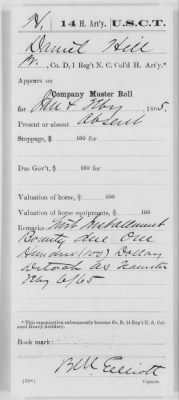 H, 14 H. Art'y. U.S.C.T.
Daniel Hill
Pt., Co. D, 1 Reg't N. C. Col'd H. Art'y.*
Appears on
Company Muster Roll
for Jan & Feby, 1865.
Present or absent Absent
Stoppage, $ 100 for
Due Gov't, $ 100 for
Valuation of horse, $ 100
Valuation of horse equipments, $ 100
Remarks: First Installment
Bounty due One
Hundred (100) Dollars
as
Feby 6/65
*This organization subsequently became Co. D, 14 Reg't U. S. Colored Heavy Artillery.
Book mark:
Elliott
(358) Copyist.